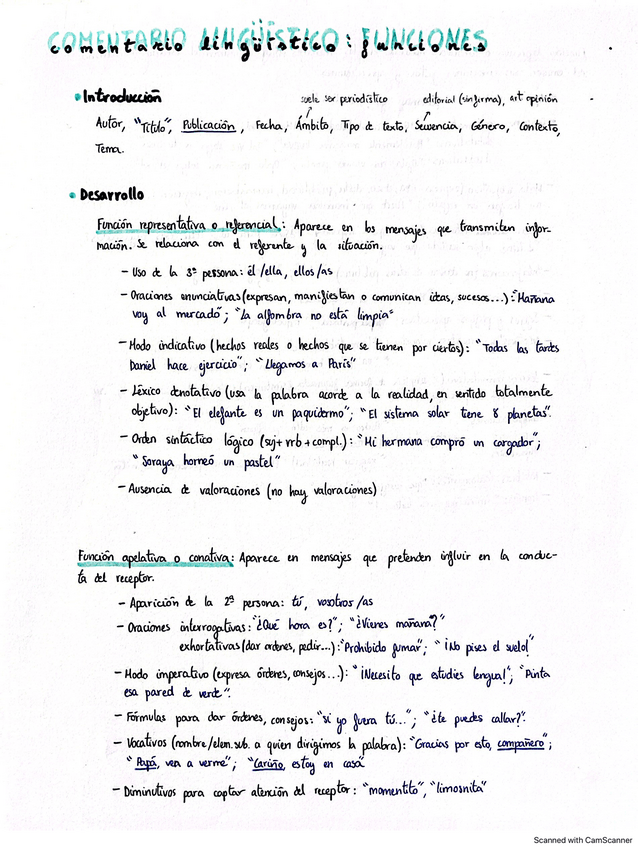 COMENTARIO LINGÜÍSTICO: FUNCIONES
comentario lingüístico: funciones
• Introducción
suele ser periodístico editorial (sin firma), art opinión
Autor, "Título", Publicación, Fecha, Ámbito, Tipo de texto, Secuencia, Género, Contexto,
Tema.
• Desarrollo
Función representativa o referencial: Aparece en los mensajes que transmiten infor-
mación. Se relaciona con el referente y la situación.
- Uso de la 3ª persona: él /ella, ellos/as
- Oraciones enunciativas (expresan, manifiestan o comunican ideas, sucesos...): "Mañana
voy al mercado"; "La alfombra no está limpia"
- Modo indicativo (hechos reales o hechos que se tienen por ciertos): "Todas las tardes
Daniel hace ejercicio"; "Llegamos a París"
- Léxico denotativo (usa la palabra acorde a la realidad, en sentido totalmente
objetivo): "El elefante es un paquidermo"; "El sistema solar tiene 8 planetas".
- Orden sintáctico lógico (suj + vrb + compl.): "Mi hermana compró un cargador";
"Soraya horneó un pastel"
- Ausencia de valoraciones (no hay valoraciones)
Función apelativa o conativa: Aparece en mensajes que pretenden influir en la conduc-
ta del receptor.
- Aparición de la 2ª persona: tú, vosotros /as
- Oraciones interrogativas: "¿Qué hora es?"; "¿Vienes mañana?"
exhortativas (dar ordenes, pedir...): "Prohibido fumar"; "¡No pises el suelo!"
- Modo imperativo (expresa órdenes, consejos...): "¡Necesito que estudies lengua!", "Pinta
esa pared de verde".
- Fórmulas para dar órdenes, consejos: "si yo fuera tú..."; "¿te puedes callar?".
- Vocativos (nombre/elem. sub. a quien dirigimos la palabra): "Gracias por esto, compañero";
"Papá, ven a verme"; "Cariño, estoy en casa"
- Diminutivos para captar atención del receptor: "momentito", "limosnita"
Scanned with CamScanner